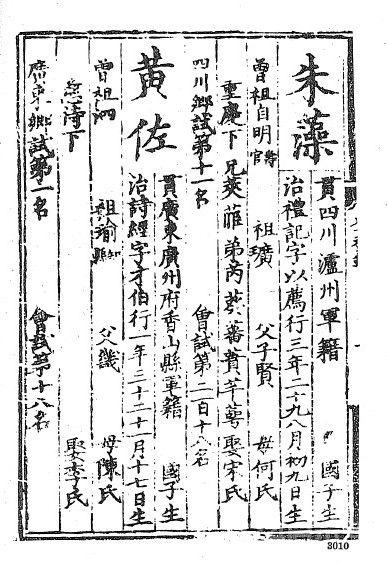 朱藻
貫四川瀘州軍籍 國子生
治禮記字以薦行三年二十九八月初九日生
曾祖自明 祖 父子賢 母何氏
重慶下 兄 菲 弟芮 蕃蕡芊萼 娶宋氏
四川鄉試第十一名 會試第二百十八名
黃佐
貫廣東廣州府香山縣軍籍 國子生
治詩經字才伯行一年三十二十一月十七日生
曾祖泗 祖瑜知縣 父畿 母陳氏
慈侍下 娶李氏
廣東鄉試第一名 會試第十八名
3010